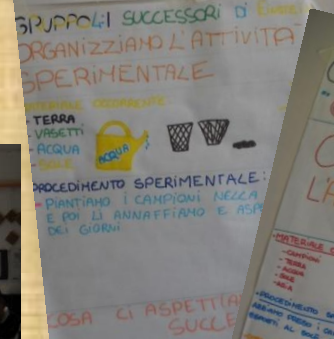 GRUPPO L: I SUCCESSORI DI
ORGANIZZIAMO L'ATTIVITÀ
SPERIMENTALE
MATERIALE OCCORRENTE
- TERRA
- VASETTI
- ACQUA
- SOLE
ACQUA
PROCEDIMENTO SPERIMENTALE:
- PIANTIAMO I CAMPIONI NELLA
E POI LI ANNAFFIAMO E ASPE
DEI GIORNI
COSA CI ASPETTIA
SUCCE
L'A
- MATERIALE
- CAMPIONI
- TERRA
- ACQUA
- SOLE
- ARIA